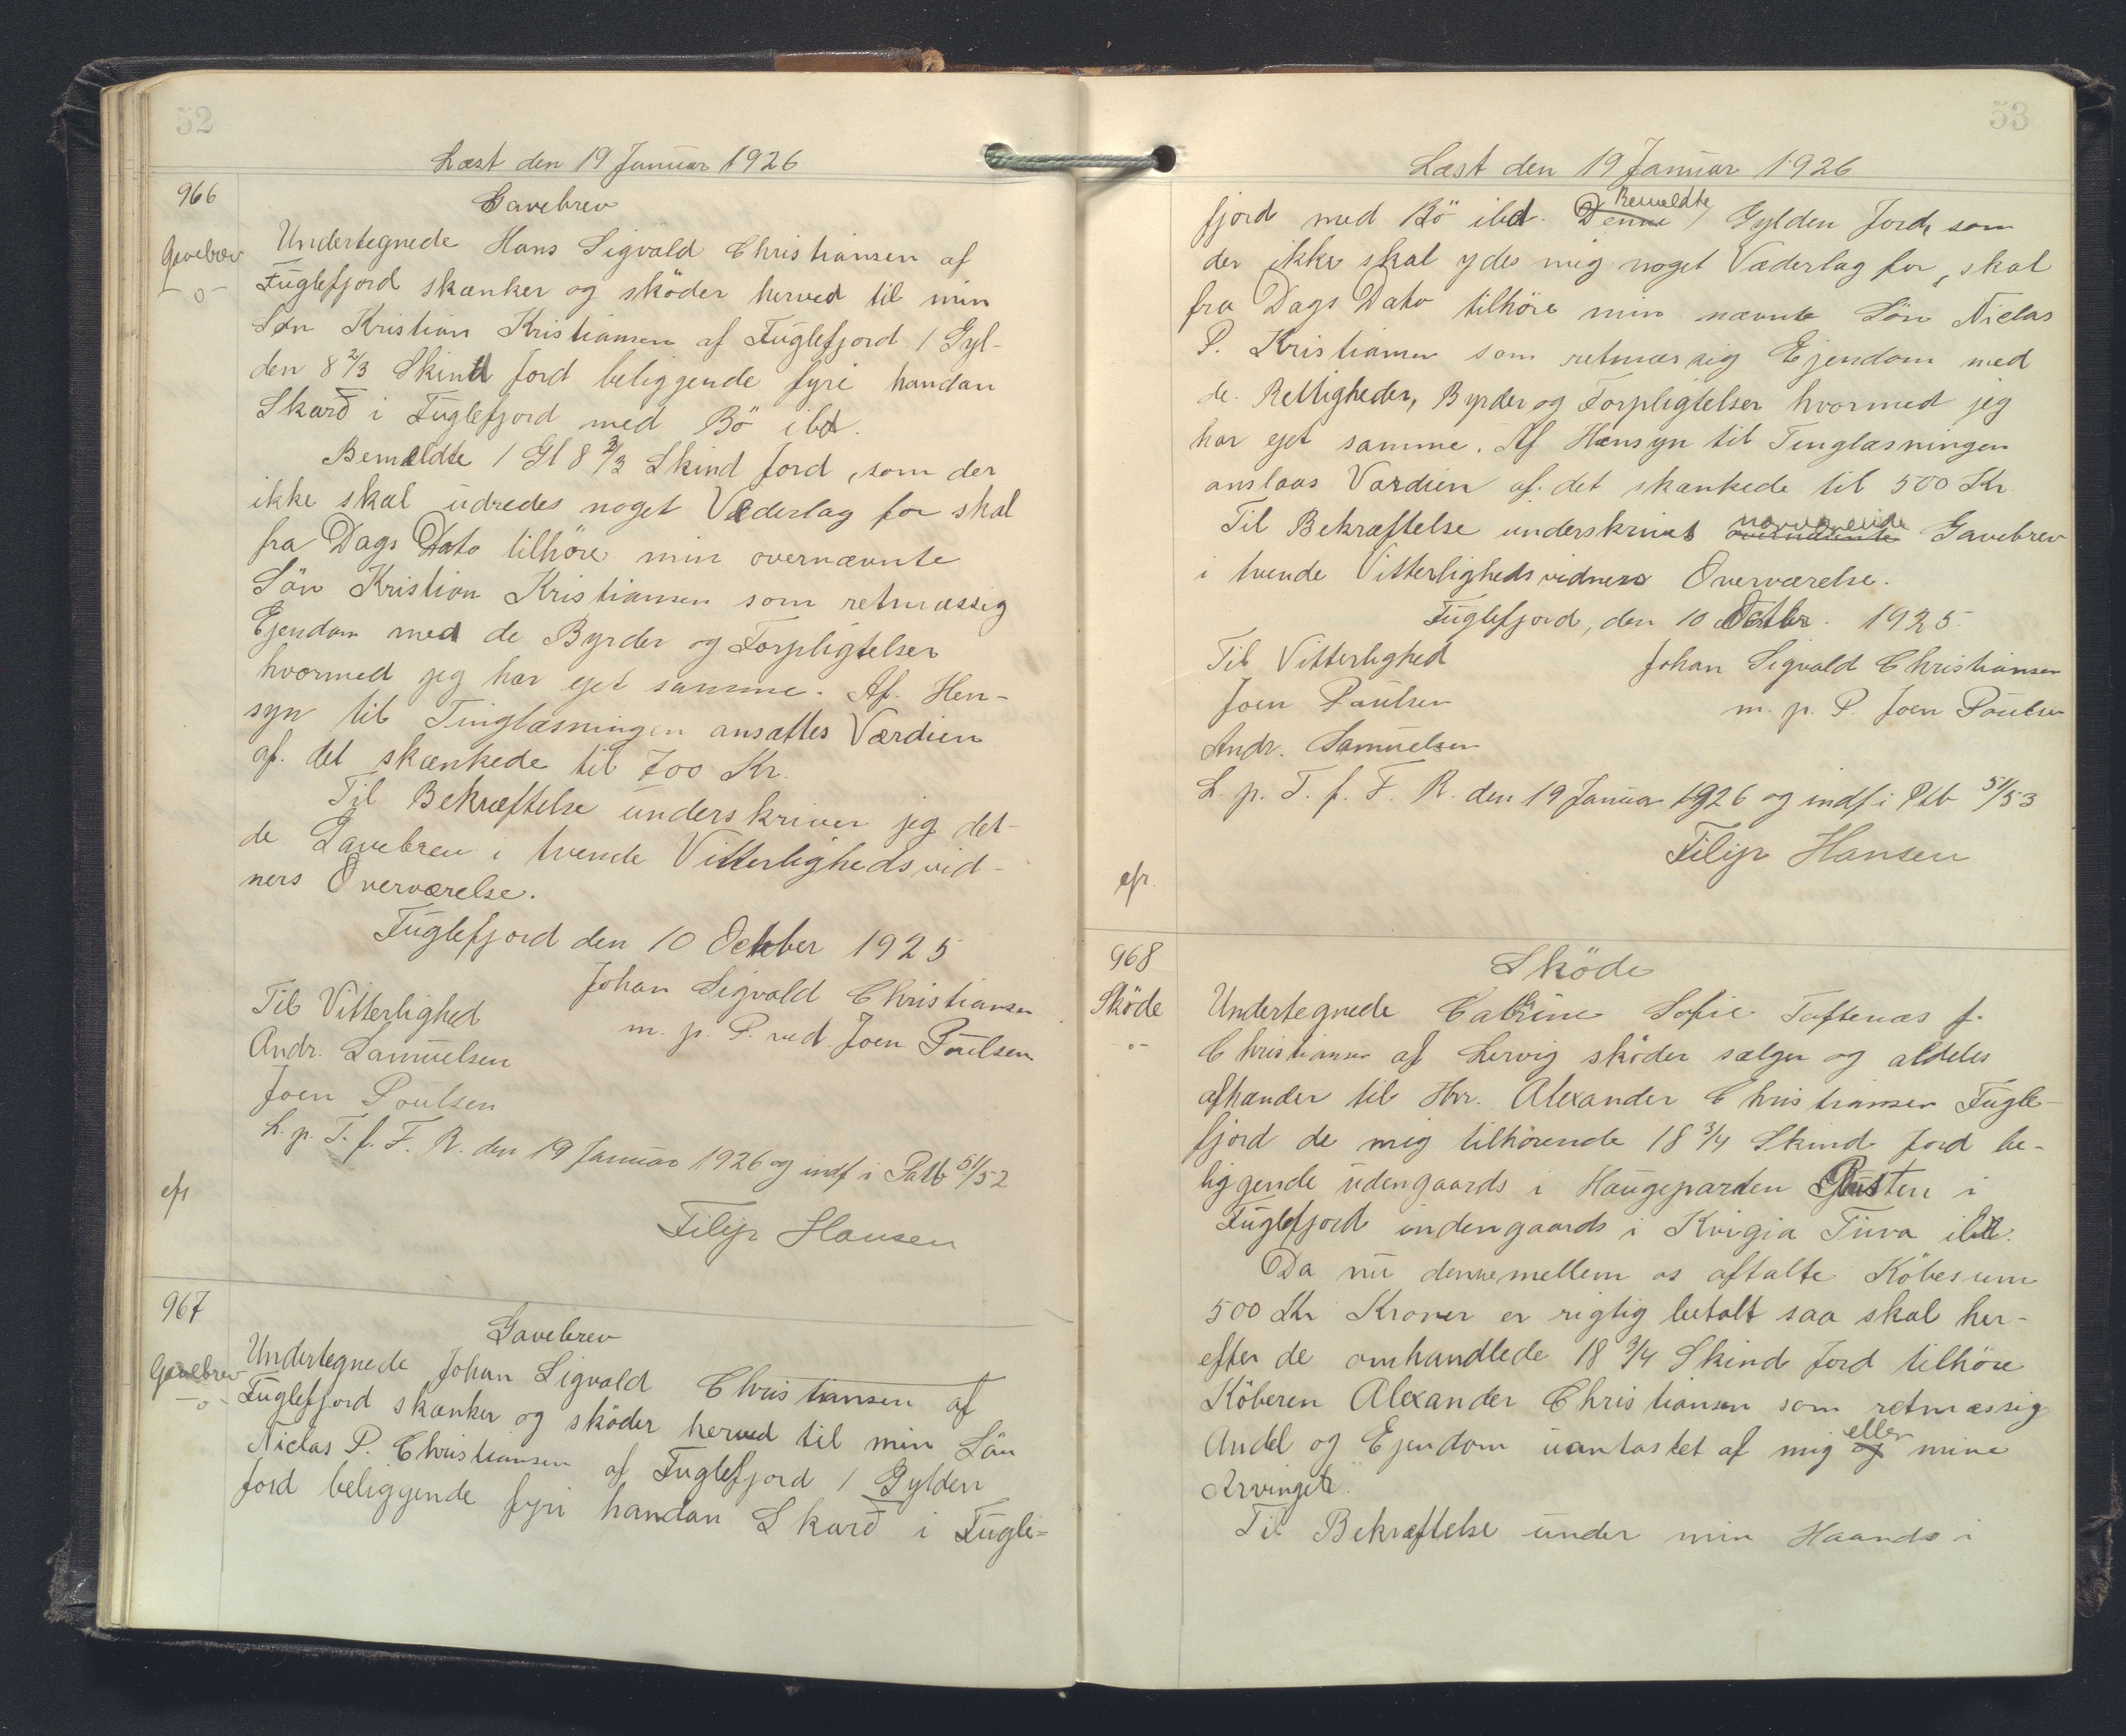 52
Læst den 19 Januar 1926
966
Gavebrev
Gavebrev
-o-
Undertegnede Hans Sigvald Christiansen af
Fuglefjord skænker og sköder herved til min
Søn Kristian Kristiansen af Fuglefjord 1 Gyl-
den 8 2/3 Skind Jord beliggende fyri handan
Skarð i Fuglefjord med Bö ibd.
Bemeldte 1 Gl 8 2/3 Skind Jord, som der
ikke skal udredes noget Vederlag for skal
fra Dags Dato tilhöre min overnævnte
Sön Kristian Kristiansen som retmæssig
Ejendom med de Byrder og Forpligtelser
hvormed jeg har ejet samme. Af Hen-
syn til Tinglæsningen ansættes Værdien
af det skænkede til 700 Kr.
Til Bekræftelse underskriver jeg det-
de Gavebrev i tvende Vitterlighedsvid-
ners Overværelse.
Fuglefjord den 10 October 1925
Til Vitterlighed
Johan Sigvald Christiansen
Andr. Samuelsen
m. p. P. ved. Joen Poulsen
Joen Poulsen
L. p. T. f. F. R. den 19 Januar 1926 og indf i Patb 51/52
efr
Filip Hansen
967
Gavebrev
Gavebrev
-o-
Undertegnede Johan Sigvald Christiansen af
Fuglefjord skænker og sköder herved til min Sön
Niclas P. Christiansen af Fuglefjord 1 Gylden
Jord beliggende fyri handan Skarð i Fugle=
53
Læst den 19 Januar 1926
fjord med Bö ibd. Denne Bemeldte Gylden Jord, som
der ikke skal ydes mig noget Vederlag for, skal
fra Dags Dato tilhöre min nævnte Sön Niclas
P. Kristiansen som retmæssig Ejendom med
de Rettigheder, Byrder og Forpligtelser hvormed jeg
har ejet samme. Af Hensyn til Tinglæsningen
anslaas Værdien af det skænkede til 500 Kr
Til Bekræftelse underskrives overnævnte nærværende Gavebrev
i tvende Vitterlighedsvidners Overværelse.
Fuglefjord, den 10 Octbr. 1925
Til Vitterlighed
Johan Sigvald Christiansen
Joen Poulsen
m. p. P. Joen Poulsen
Andr. Samuelsen
L. p. T. f. F. R. den 19 Januar 1926 og indf i Ptb 51/53
Filip Hansen
efr.
968
Sköde
Sköde
-o-
Undertegnede Catrine Sofie Toftenæs f.
Christiansen af Lervig sköder sælger og aldeles
afhænder til Hrr. Alexander Christiansen Fugle-
fjord de mig tilhörende 18 3/4 Skind Jord be-
liggende udengaards i Haugeparten i
Fuglefjord indengaards i Kvigia Tuva ibd.
Da nu denne mellem os aftalte Köbesum
500 Kr Kroner er rigtig betalt saa skal her-
efter de omhandlede 18 3/4 Skind Jord tilhöre
Köberen Alexander Christiansen som retmæssig
Andel og Ejendom uantastet af mig og eller mine
Arvinger.
Til Bekræftelse under min Haands i